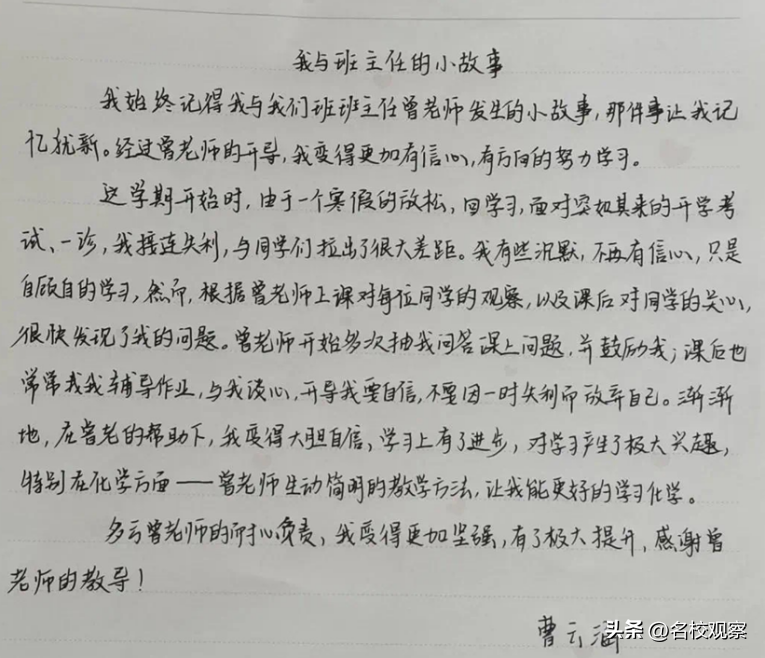 我与班主任的小故事
我始终记得我与我们班班主任曾老师发生的小故事,那件事让我记
忆犹新。经过曾老师的开导,我变得更加有信心,有方向的努力学习。
这学期开始时,由于一个寒假的放松,回学习,面对突如其来的开学考
试、一诊,我接连失利,与同学们拉出了很大差距。我有些沉默,不再有信心,只是
自顾自的学习,然而,根据曾老师上课对每位同学的观察,以及课后对同学的关心,
很快发现了我的问题。曾老师开始多次抽我问答课上问题,并鼓励我;课后也
常常找我辅导作业,与我谈心,开导我要自信,不要因一时失利而放弃自己。渐渐
地,在曾老的帮助下,我变得大胆自信,学习上有了进步,对学习产生了极大兴趣,
特别在化学方面——曾老师生动简明的教学方法,让我能更好的学习化学。
多亏曾老师的耐心负责,我变得更加坚强,有了极大提升,感谢曾
老师的教导!
曹云
头条 @名校观察